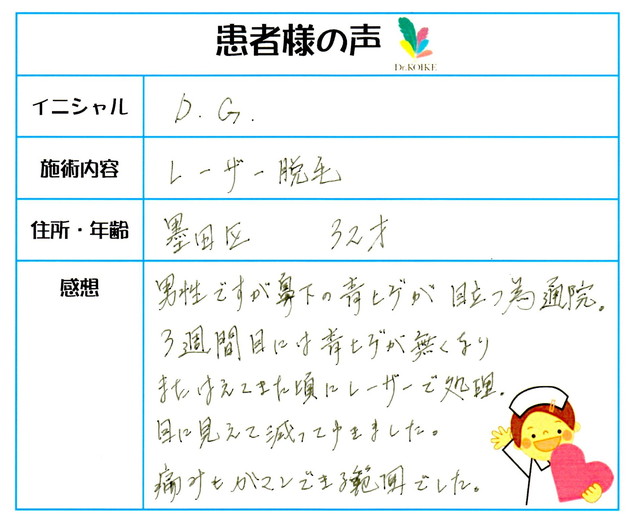 患者様の声
Dr.KOIKE
イニシャル
D.G.
施術内容
レーザー脱毛
住所・年齢
墨田区 32才
感想
男性ですが鼻下の青ヒゲが目立つ為通院。
3週間目には青ヒゲが無くなり
またはえてきた頃にレーザーで処理。
目に見えて減ってゆきました。
痛みもガマンできる範囲でした。